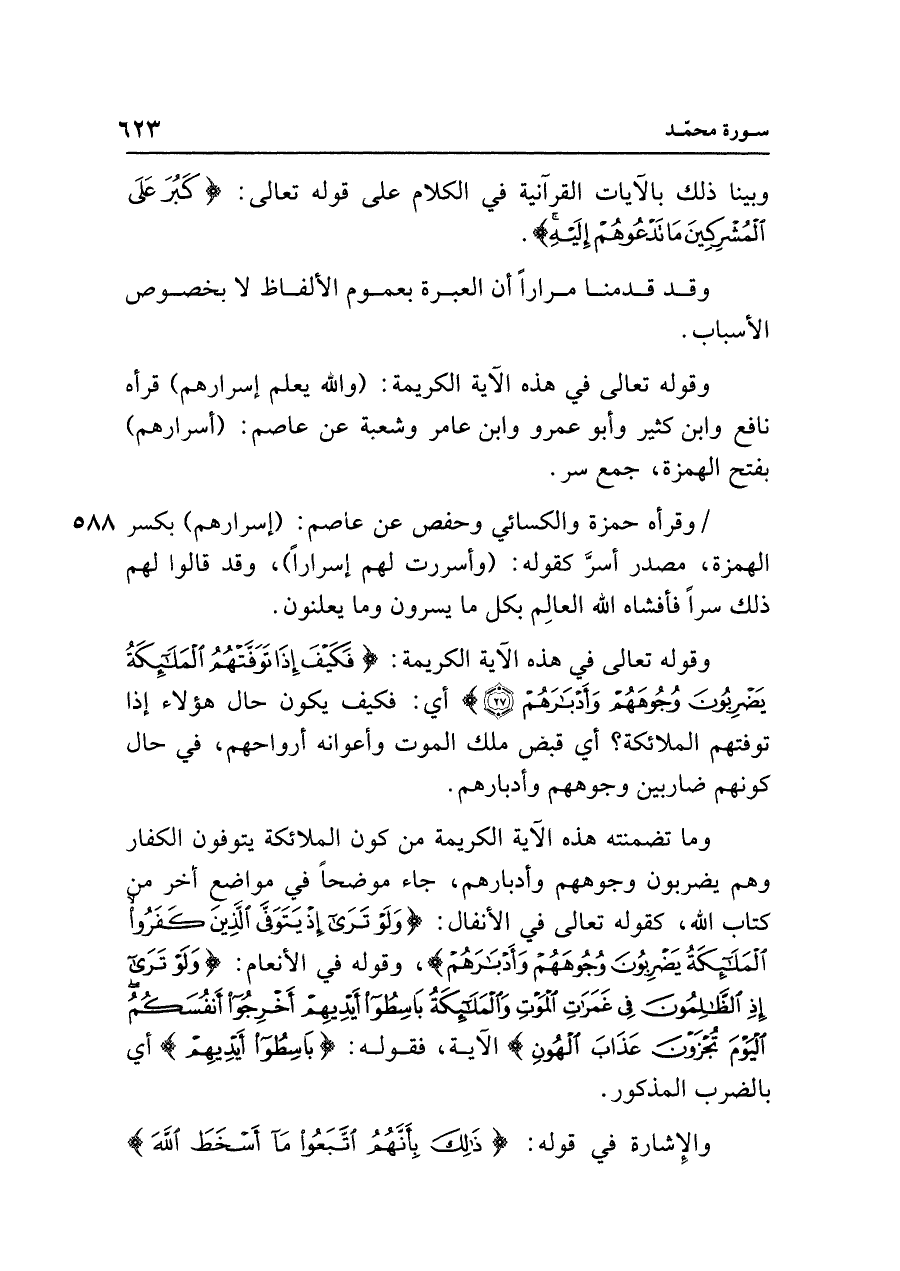 سورة محمّد ٦٢٣
وبينا ذلك بالآيات القرآنية في الكلام على قوله تعالى: ﴿كَبُرَ عَلَى
ٱلْمُشْرِكِينَ مَا تَدْعُوهُمْ إِلَيْهِ﴾.
وقد قدمنا مراراً أن العبرة بعموم الألفاظ لا بخصوص
الأسباب.
وقوله تعالى في هذه الآية الكريمة: (والله يعلم إسرارهم) قرأه
نافع وابن كثير وأبو عمرو وابن عامر وشعبة عن عاصم: (أسرارهم)
بفتح الهمزة، جمع سر.
/ وقرأه حمزة والكسائي وحفص عن عاصم: (إسرارهم) بكسر ٥٨٨
الهمزة، مصدر أسرَّ كقوله: (وأسررت لهم إسراراً)، وقد قالوا لهم
ذلك سراً فأفشاه الله العالِم بكل ما يسرون وما يعلنون.
وقوله تعالى في هذه الآية الكريمة: ﴿فَكَيْفَ إِذَا تَوَفَّتْهُمُ ٱلْمَلَٰٓئِكَةُ
يَضْرِبُونَ وُجُوهَهُمْ وَأَدْبَٰرَهُمْ ۝٢٧﴾ أي: فكيف يكون حال هؤلاء إذا
توفتهم الملائكة؟ أي قبض ملك الموت وأعوانه أرواحهم، في حال
كونهم ضاربين وجوههم وأدبارهم.
وما تضمنته هذه الآية الكريمة من كون الملائكة يتوفون الكفار
وهم يضربون وجوههم وأدبارهم، جاء موضحاً في مواضع أخر من
كتاب الله، كقوله تعالى في الأنفال: ﴿وَلَوْ تَرَىٰٓ إِذْ يَتَوَفَّى ٱلَّذِينَ كَفَرُوا۟
ٱلْمَلَٰٓئِكَةُ يَضْرِبُونَ وُجُوهَهُمْ وَأَدْبَٰرَهُمْ﴾، وقوله في الأنعام: ﴿وَلَوْ تَرَىٰٓ
إِذِ ٱلظَّٰلِمُونَ فِى غَمَرَٰتِ ٱلْمَوْتِ وَٱلْمَلَٰٓئِكَةُ بَاسِطُوٓا۟ أَيْدِيهِمْ أَخْرِجُوٓا۟ أَنفُسَكُمُ ۖ
ٱلْيَوْمَ تُجْزَوْنَ عَذَابَ ٱلْهُونِ﴾ الآية، فقوله: ﴿بَاسِطُوٓا۟ أَيْدِيهِمْ﴾ أي
بالضرب المذكور.
والإشارة في قوله: ﴿ذَٰلِكَ بِأَنَّهُمُ ٱتَّبَعُوا۟ مَآ أَسْخَطَ ٱللَّهَ﴾